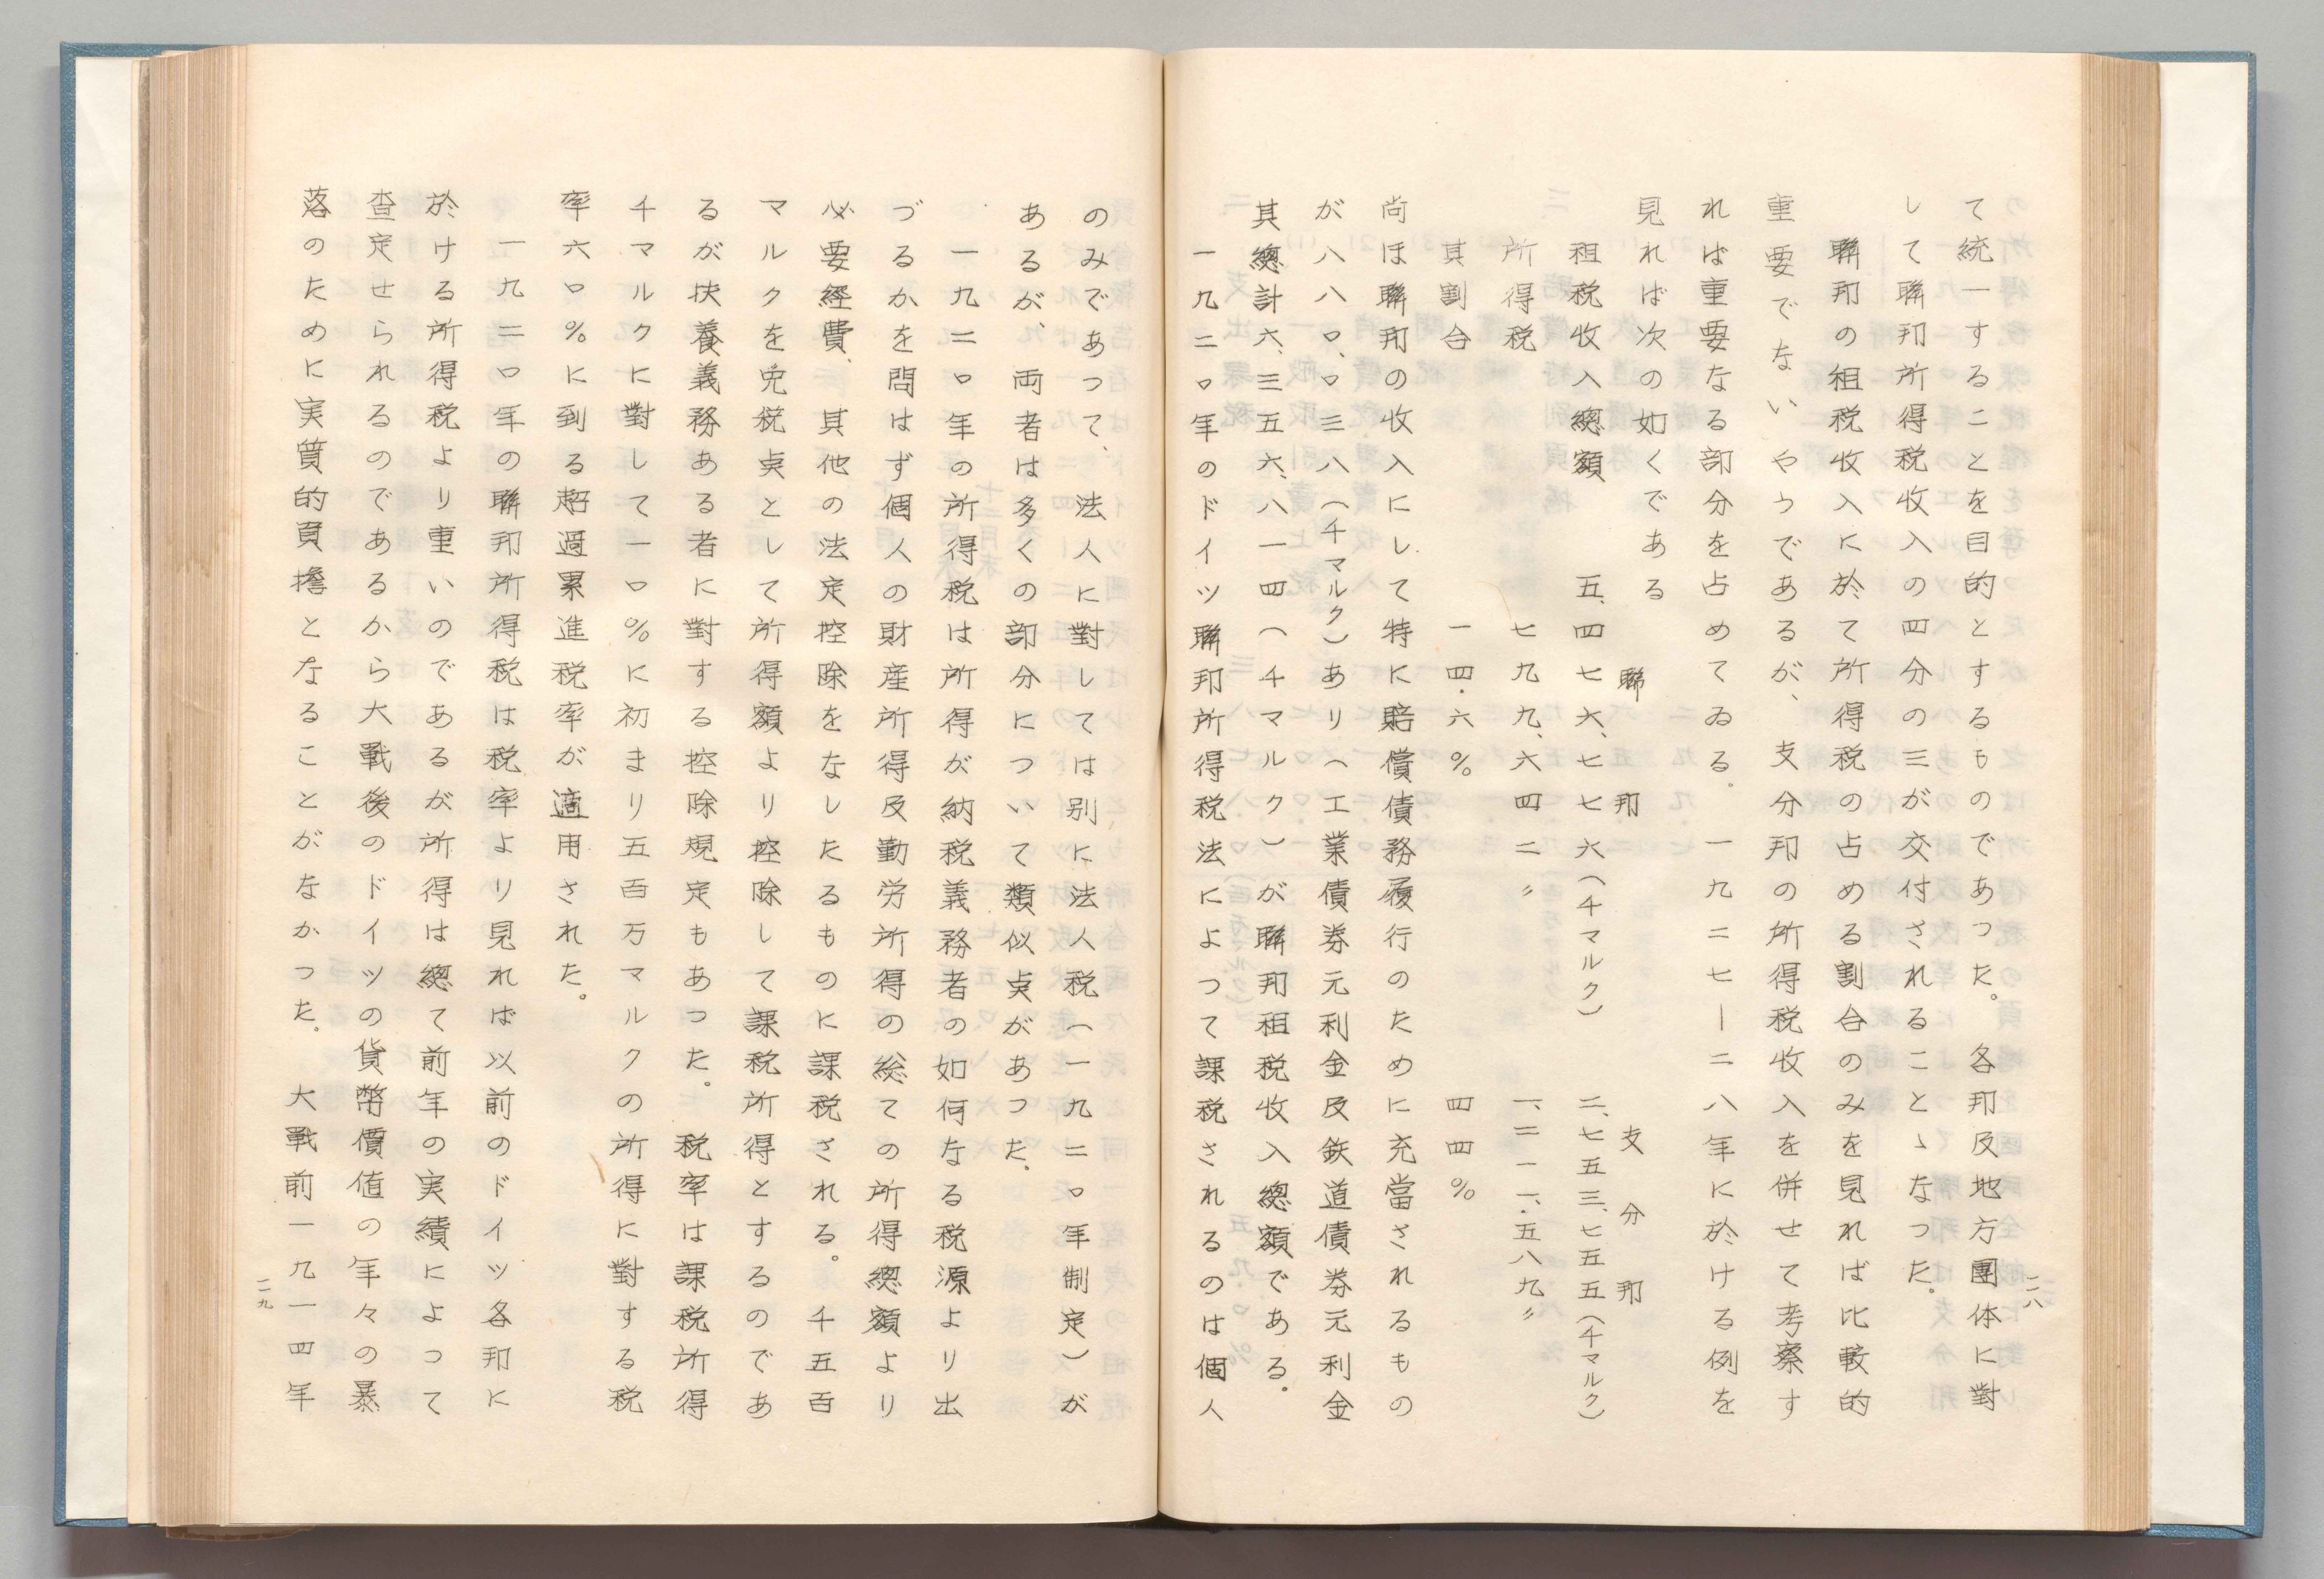 二八
て統一することを目的とするものであつた。各邦及地方團体に對
して聯邦所得税收入の四分の三が交付されることゝなつた。
聯邦の租税收入に於て所得税の占める割合のみを見れば比較的
重要でないやうであるが、支分邦の所得税收入を併せて考察す
れば重要なる部分を占めてゐる。一九二七―二八年に於ける例を
見れば次の如くである
聯邦 支分邦
租税收入總額 五、四七六、七七六(千マルク) 二、七五三、七五五(千マルク)
所得税 七九九、六四二〃 一、二一一、五八九〃
其割合 一四・六% 四四%
尚ほ聯邦の收入にして特に賠償債務履行のために充當されるもの
が八八〇、〇三八(千マルク)あり(工業債券元利金及鉄道債券元利金
其總計六、三五六、八一四(千マルク)が聯邦租税收入總額である。
一九二〇年のドイツ聯邦所得税法によつて課税されるのは個人
のみであつて、法人に對しては別に法人税(一九二〇年制定)が
あるが、両者は多くの部分について類似奌があつた。
一九二〇年の所得税は所得が納税義務者の如何なる税源より出
づるかを問はず個人の財産所得及勤労所得の総ての所得總額より
必要経費、其他の法定控除をなしたるものに課税される。千五百
マルクを免税奌として所得額より控除して課税所得とするのであ
るが扶養義務ある者に對する控除規定もあつた。税率は課税所得
千マルクに對して一〇%に初まり五百万マルクの所得に對する税
率六〇%に到る超過累進税率が適用された。
一九二〇年の聯邦所得税は税率より見れば以前のドイツ各邦に
於ける所得税より重いのであるが所得は總て前年の実績によつて
査定せられるのであるから大戰後のドイツの貨幣價値の年々の暴
落のために実質的負擔となることがなかつた。大戰前一九一四年
二九